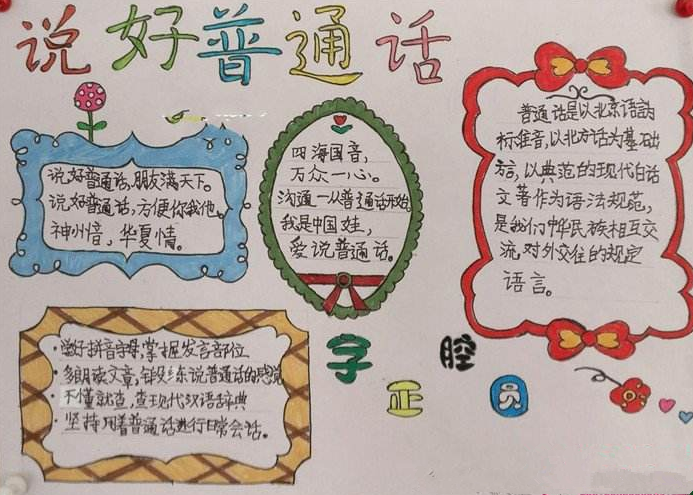 说好普通话
说好普通话,朋友满天下。
说好普通话,方便你我他。
神州音,华夏情。
四海国音,
万众一心。
沟通一从普通话开始
我是中国娃,
爱说普通话。
普通话是以北京语音为
标准音,以北方话为基础
方言,以典范的现代白话
文著作为语法规范,
是我们中华民族相互交
流对外交往的规定
语言。
·学好拼音字母,掌握发言部位
·多朗读文章,锻炼说普通话的感觉
·不懂就查,查现代汉语辞典
·坚持用着普通话进行日常会话。
字正腔圆